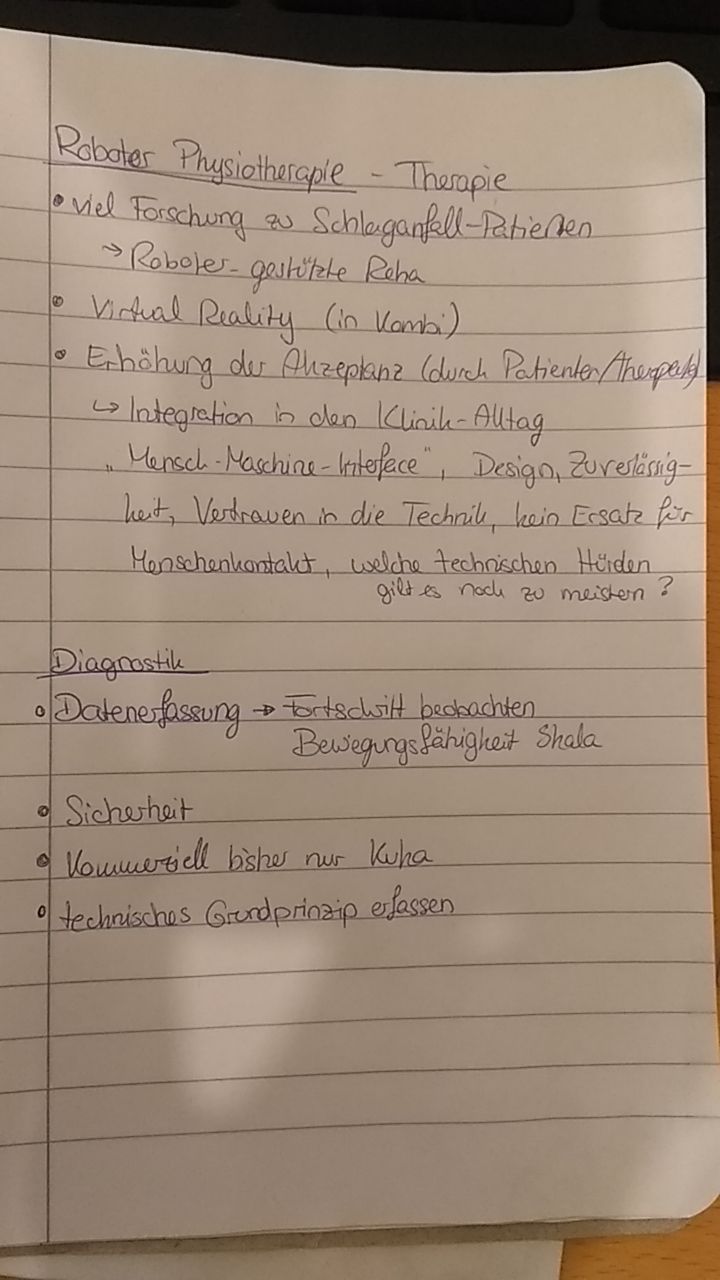 Roboter Physiotherapie - Therapie
• viel Forschung zu Schlaganfall-Patienten
→ Roboter-gestützte Reha
• Virtual Reality (in Kombi)
• Erhöhung der Akzeptanz (durch Patienten/Therapeut)
↳ Integration in den Klinik-Alltag
„Mensch-Maschine-Interface", Design, Zuverlässig-
keit, Vertrauen in die Technik, kein Ersatz für
Menschenkontakt, welche technischen Hürden
gilt es noch zu meistern?
Diagnostik
• Datenerfassung → Fortschritt beobachten
Bewegungsfähigkeit Skala
• Sicherheit
• Kommerziell bisher nur Kuka
• technisches Grundprinzip erfassen